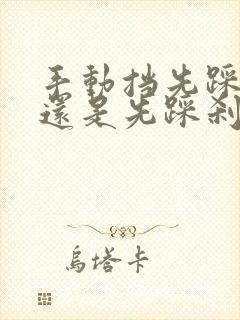 手動挡先踩
還是先踩刹
烏塔卡